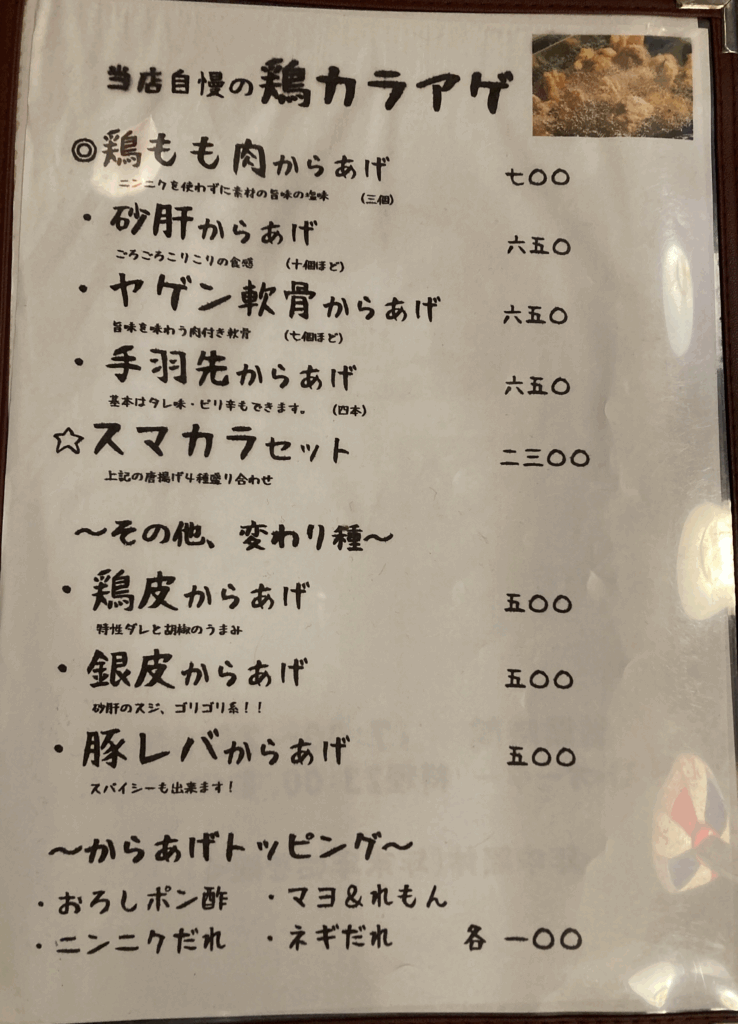 当店自慢の鶏カラアゲ
◎鶏もも肉からあげ 七〇〇
ニンニクを使わずに素材の旨味の塩味 (三個)
・砂肝からあげ 六五〇
ごろごろこりこりの食感 (十個ほど)
・ヤゲン軟骨からあげ 六五〇
旨味を味わう肉付き軟骨 (七個ほど)
・手羽先からあげ 六五〇
基本はタレ味・ピリ辛もできます。 (四本)
☆スマカラセット 二三〇〇
上記の唐揚げ4種盛り合わせ
～その他、変わり種～
・鶏皮からあげ 五〇〇
特性ダレと胡椒のうまみ
・銀皮からあげ 五〇〇
砂肝のスジ、ゴリゴリ系!!
・豚レバからあげ 五〇〇
スパイシーも出来ます!
～からあげトッピング～
・おろしポン酢 ・マヨ&れもん
・ニンニクだれ ・ネギだれ 各 一〇〇